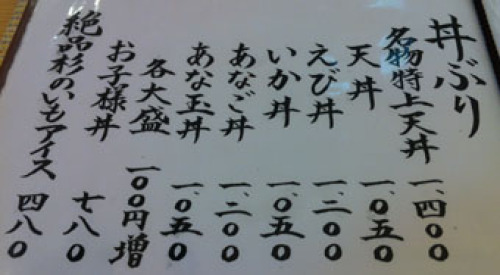 丼ぶり
名物特上天丼 一、四〇〇
天丼 一、〇五〇
えび丼 一、二〇〇
いか丼 一、〇五〇
あなご丼 一、二〇〇
あな玉丼 一、〇五〇
各大盛 一〇〇円増
お子様丼 七八〇
絶品杉のいもアイス 四八〇